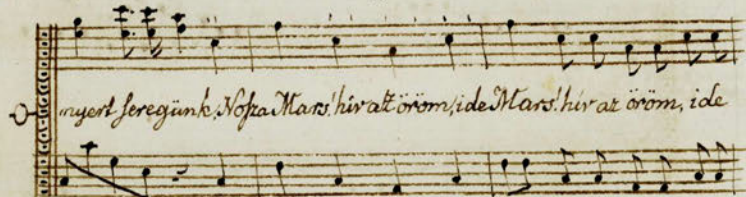 nyert seregünk, Nosza Mars! hív az öröm, ide Mars! hív az öröm, ide